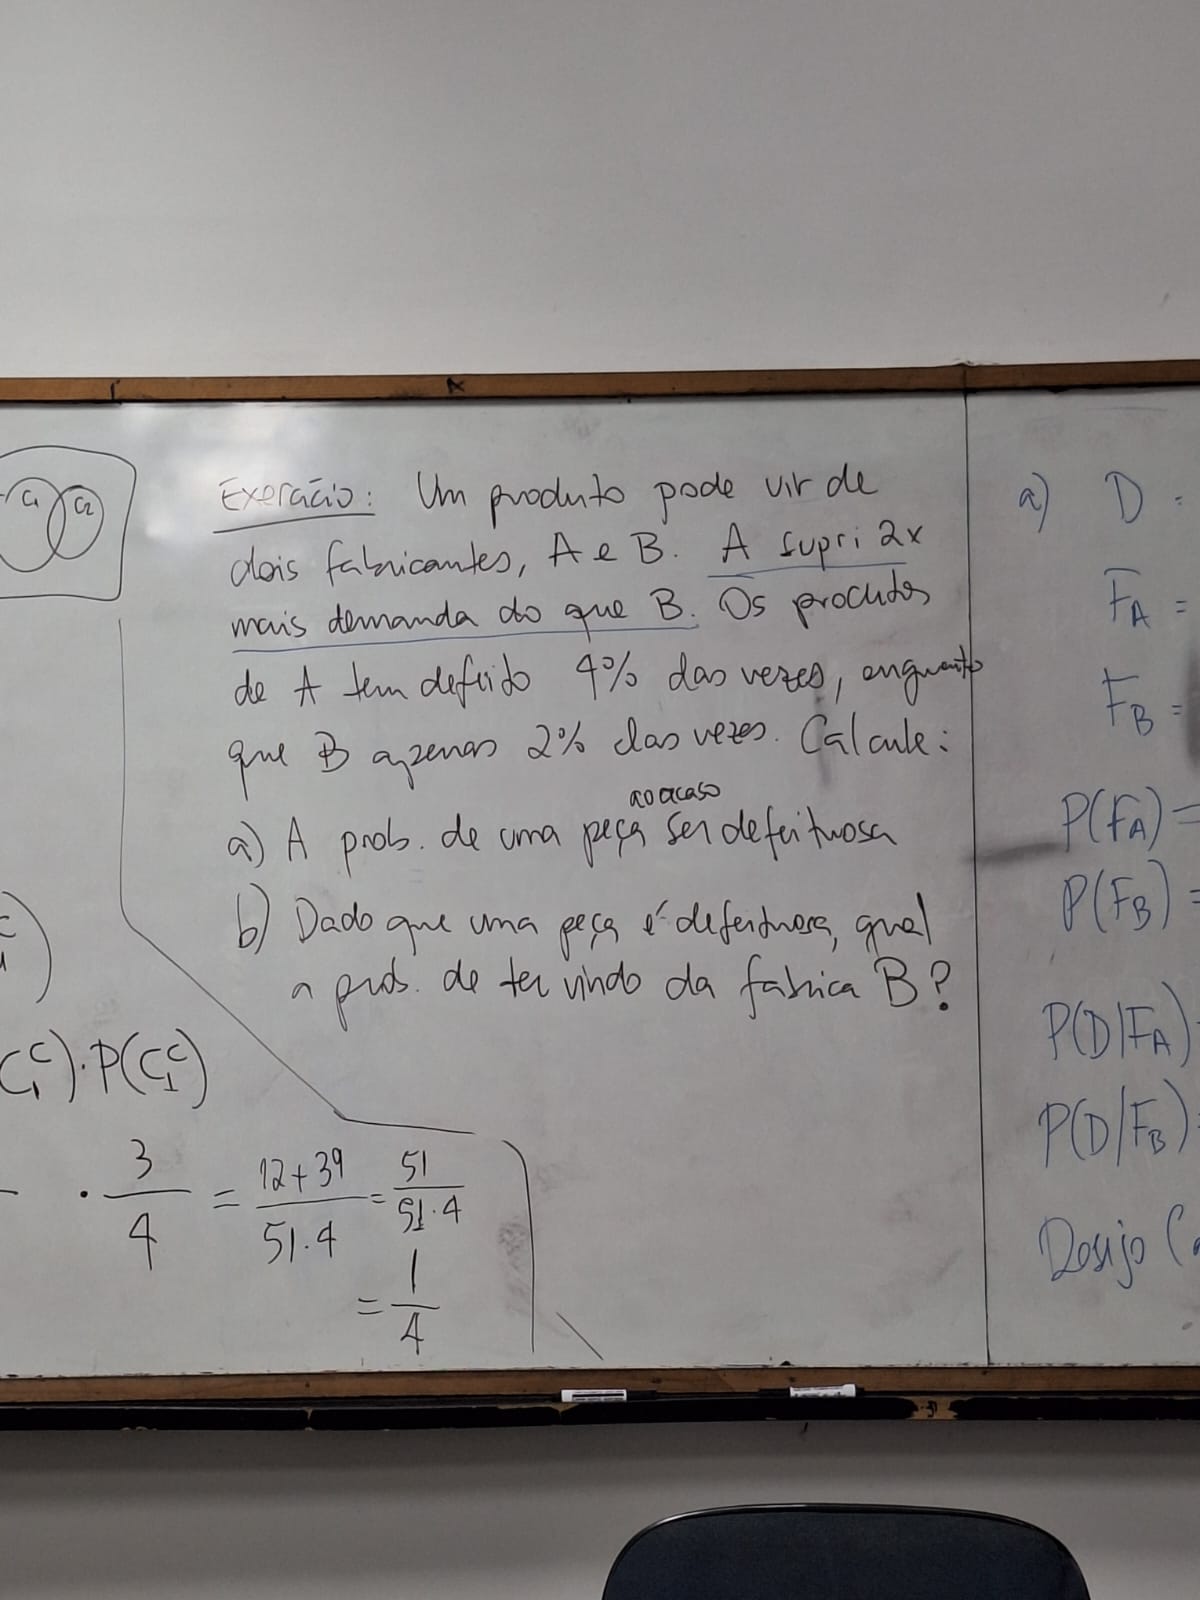 C1 C2
Exercício: Um produto pode vir de
dois fabricantes, A e B. A supri 2x
mais demanda do que B. Os produtos
de A tem defeito 4% das vezes, enquanto
que B apenas 2% das vezes. Calcule:
ao acaso
a) A prob. de uma peça ser defeituosa
b) Dado que uma peça é defeituosa, qual
a prob. de ter vindo da fabrica B?
C₁ᶜ)·P(C₁ᶜ)
· 3/4 = 12+39/51.4 = 51/51.4
= 1/4
a) D :
F_A =
F_B =
P(F_A) =
P(F_B) =
P(D|F_A)
P(D|F_B)